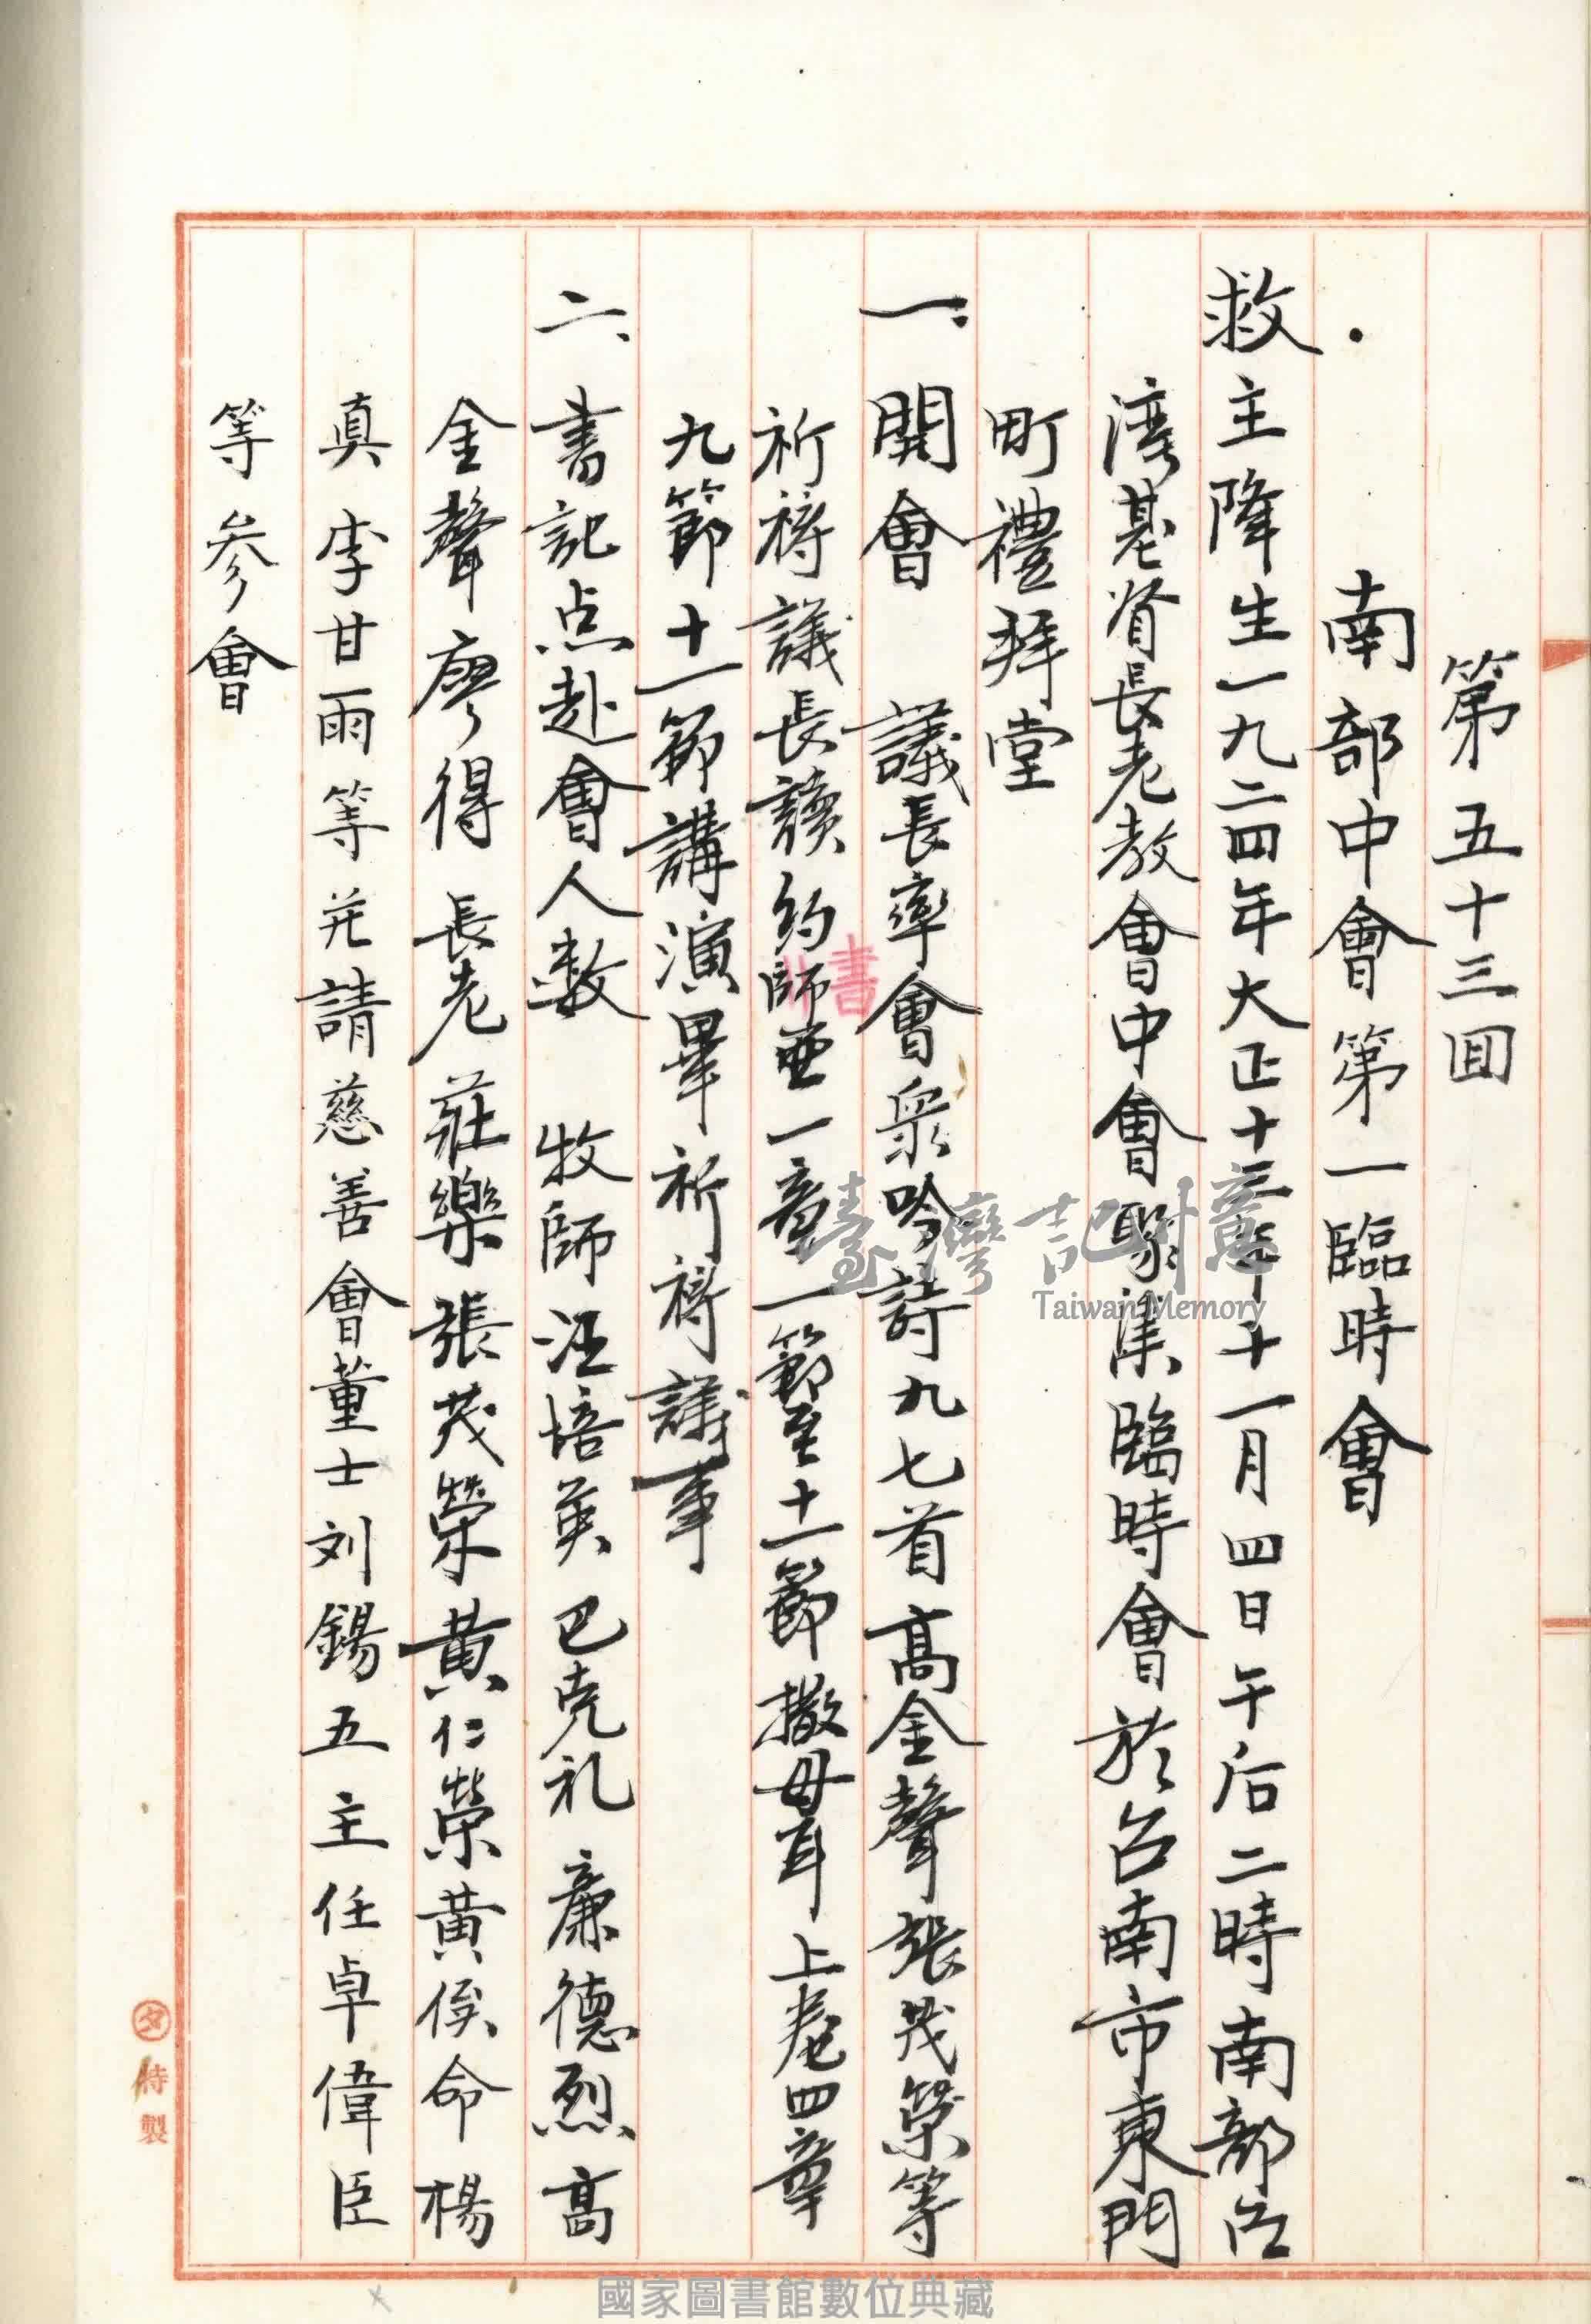 第五十三回
南部中會第一臨時會
救主降生一九二四年大正十三年十一月四日午后二時南部台
湾基督長老教會中會聚集臨時會於台南市東門
町禮拜堂
一、開會 議長率會眾吟詩九七首高金聲張茂榮等
祈禱議長讀約師亜一章一節至十一節撒母耳上卷四章
九節十一節講演畢祈禱議事
二、書記点赴會人数 牧師汪培英巴克礼廉德烈高
金聲廖得長老莊樂張茂榮黃仁榮黃俟命楊
真李甘雨等并請慈善會董士刘錫五主任卓偉臣
等參會
書
特製
臺灣記憶
Taiwan Memory
國家圖書館數位典藏